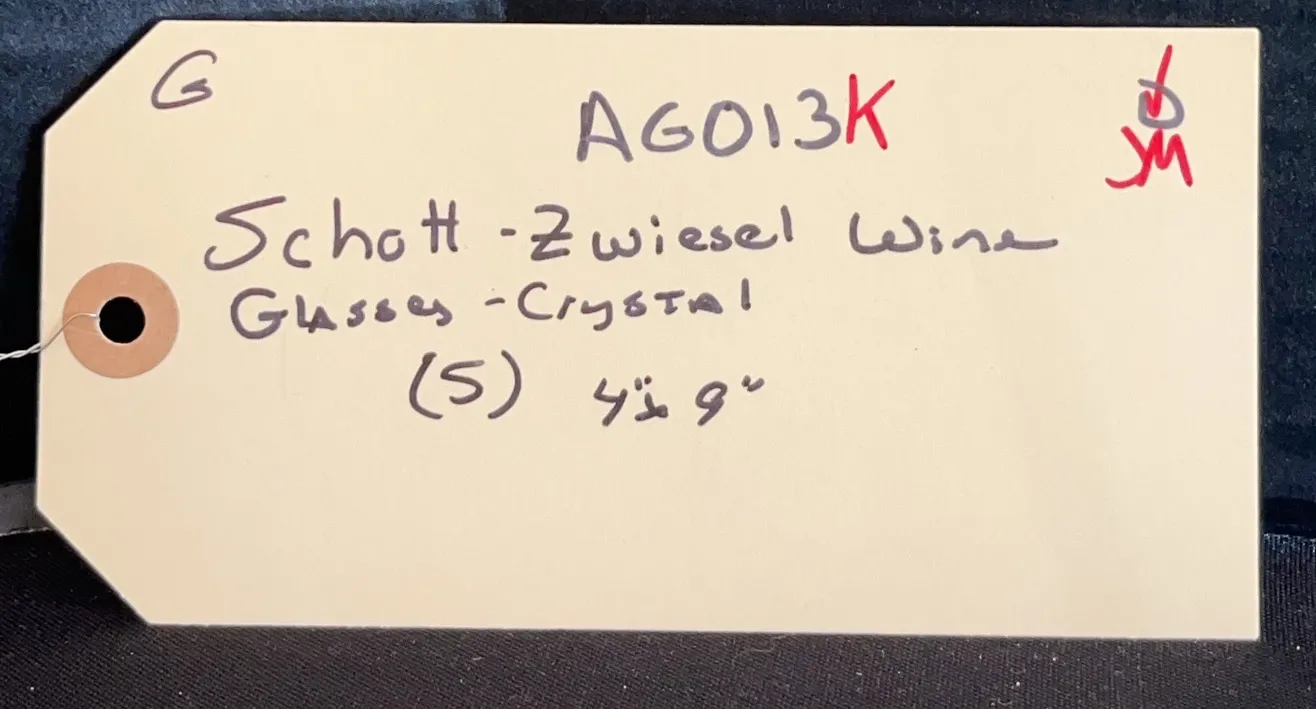 G
AG013K
D
JM
Schott-Zwiesel Wine
Glasses-Crystal
(5) 4"x 9"